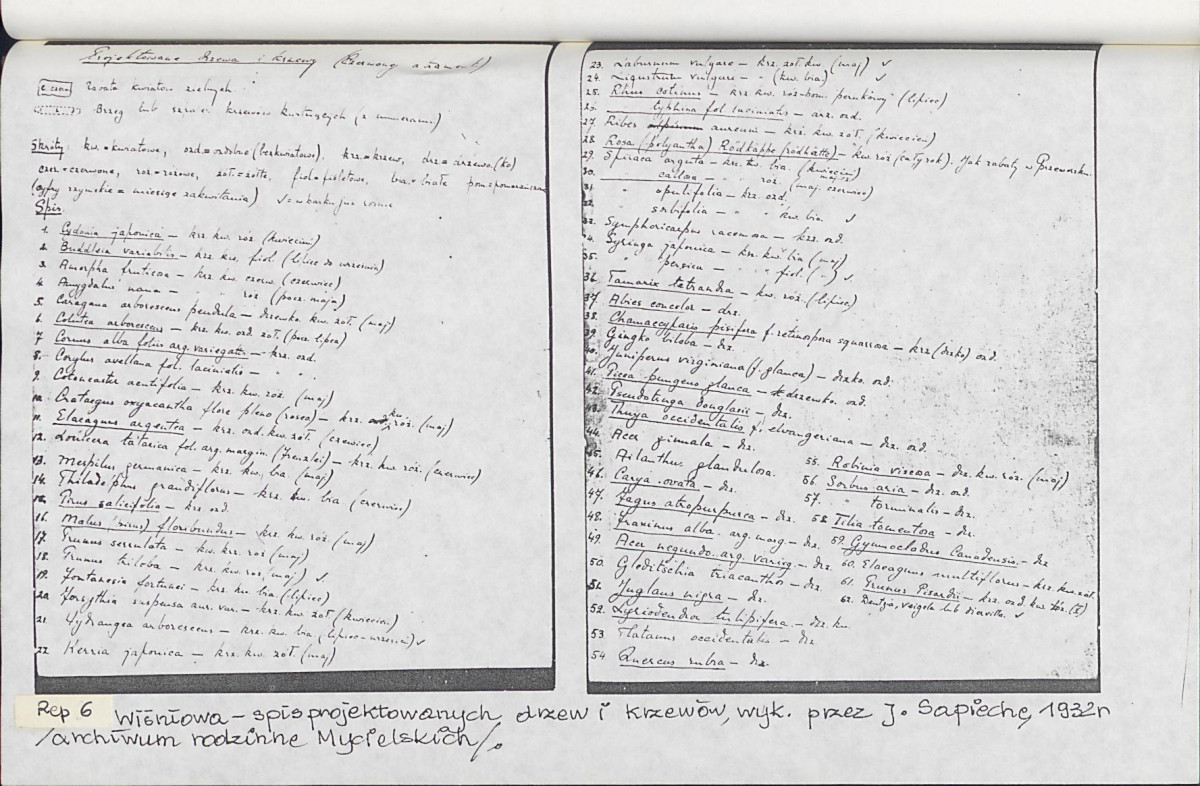 Projektowane drzewa i krzewy (Czerwony atrament)
Rabata kwiatów zielnych
Brzeg lub szpaler krzewów kwitnących (z numerami)
Skróty: kw.=kwiatowe, ozd.=ozdobne (bezkwiatowe), krz.=krzew, drz.=drzewo(ko)
czer.=czerwone, róż=różowe, żół.=żółte, fiol=fioletowe, bia.=białe
(cyfry rzymskie = miesiące zakwitania) √=w parku już rosnie
Spis.
1. Cydonia japonica – krz. kw. róż. (kwiecień)
2. Buddleia variabilis – krz. kw. fiol. (lipiec do wrzesnia)
3. Amorpha fruticosa – krz. kw. czerw. (czerwiec)
4. Amygdalus nana – " " róż (pocz. maja)
5. Caragana arborescens pendula – drzewko kw. żół. (maj)
6. Colutea arborescens – krz. kw. ozd. żół. (pocz. lipca)
7 Cornus alba foliis arg. variegatis – krz. ozd.
8. Corylus avellana fol. laciniatis – " "
9. Cotoneaster acutifolia – krz. kw. róż. (maj)
10. Crataegus oxyacantha flore pleno (roseo) – krz. kw. róż. (maj)
11. Elaeagnus argentea – krz. ozd. kw. żół. (czerwiec)
12. Lonicera tatarica fol. arg. margin. (Frenzlei) – krz. kw. róż. (czerwiec)
13. Mespilus germanica – krz. kw. bia. (maj)
14. Philadelphus grandiflorus – krz. kw. bia (czerwiec)
15. Pirus salicifolia – krz. ozd.
16. Malus (pirus) floribundus – krz. kw. róż. (maj)
17. Prunus serrulata – kw. krz. róż (maj)
18. Prunus triloba – krz. kw. róż. (maj) √
19. Fontanesia fortunei – krz. kw. bia. (lipiec)
20. Forsythia suspensa aur. var. – krz. kw. żół (kwiecien)
21. Hydrangea arborescens – krz. kw. bia (lipiec–wrzesień) √
22. Kerria japonica – krz. kw. żół. (maj)
23. Laburnum vulgare – krz. żół. kw. (maj) √
24. Ligustrum vulgare – " (kw. bia.) √
25. Rhus cotinus – krz. kw. róż-bom. perukowy (lipiec)
26. " typhina fol. laciniatis – krz. ozd.
27. Ribes aureum – krz. kw. żół. (kwiecien)
28. Rosa (polyantha) Rödkäppe (rödhätte) – kw. róż (cały rok). Jak rabaty w Przeworsku
29. Spiraea arguta – krz. kw. bia. (kwiecień)
30. " callosa – " " róż. (maj czerwiec)
31. " opulifolia – krz. ozd.
32. " sorbifolia – " " kw. bia. √
33. Symphoricarpus racemosa – krz. ozd.
34. Syringa japonica – krz. kw. bia (maj)
35. " persica – " " fiol. ( " ) √
36. Tamarix tetrandra – kw. róż. (lipiec)
37. Abies concolor – drz.
38. Chamaecyparis pisifera f. retinospora squarrosa – krz (drzko) ozd.
39. Gingko biloba – drz.
40. Juniperus virginiana (f. glauca) – drzko. ozd.
41. Picea pungens glauca – drzewko. ozd.
42. Pseudotsuga douglasii – drz.
43. Thuya occidentalis f. elvangeriana – drz. ozd.
44. Acer ginnala – drz.
45. Ailanthus glandulosa.
46. Carya ovata – drz.
47. Fagus atropurpurea – drz.
48. Fraxinus alba. arg. marg – drz.
49. Acer negundo. arg. varieg. – drz.
50. Gleditschia triacanthos – drz.
51. Juglans nigra – drz.
52. Lyriodendron tulipifera – drz. kw.
53 Platanus occidentalis – drz
54 Quercus rubra – drz.
55. Robinia viscosa – drz. kw. róż. (maj)
56 Sorbus aria – drz. ozd.
57. " torminalis – drz.
58. Tilia tomentosa – drz.
59. Gymnocladus Canadensis – drz
60. Elaeagnus multiflorus – krz. kw. żół.
61. Prunus Pisardii – krz. ozd. kw. róż. (V)
62. Deutzia, veigela lub diervilla. √
Rep 6 Wiśniowa – spis projektowanych drzew i krzewów, wyk. przez J. Sapiechę, 1932r
/archiwum rodzinne Mycielskich/.